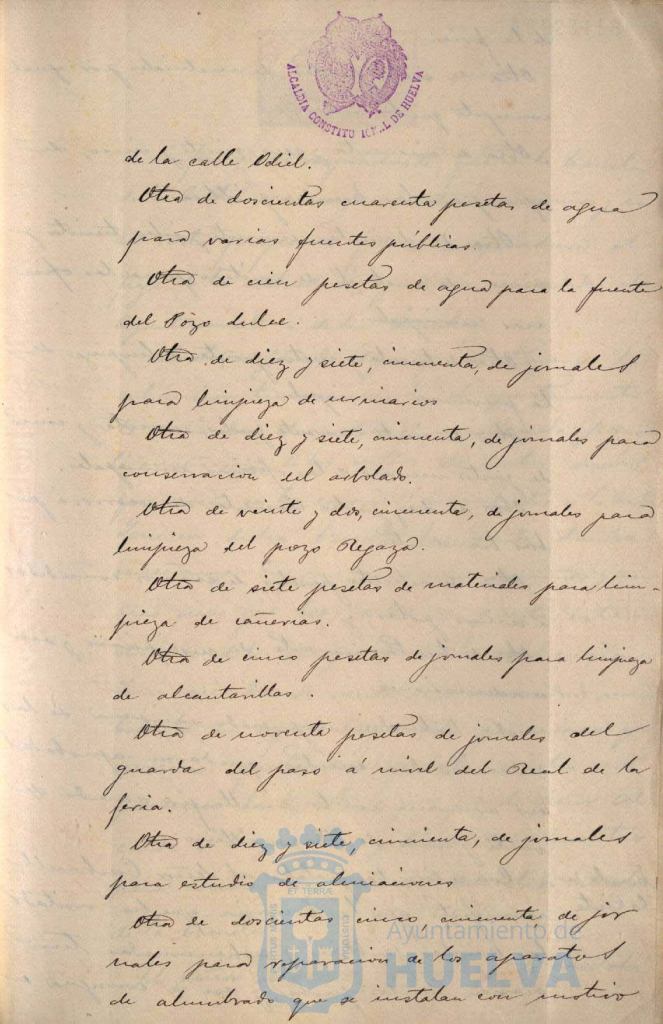 ALCALDIA CONSTITUCIONAL DE HUELVA
de la calle Odiel.
Otra de doscientas cuarenta pesetas de agua
para varias fuentes públicas.
Otra de cien pesetas de agua para la fuente
del Pozo dulce.
Otra de diez y siete, cincuenta, de jornales
para limpieza de urinarios
Otra de diez y siete, cincuenta, de jornales para
conservacion del arbolado.
Otra de veinte y dos, cincuenta, de jornales para
limpieza del pozo Regaza.
Otra de siete pesetas de materiales para lim-
pieza de cañerias.
Otra de cinco pesetas de jornales para limpieza
de alcantarillas.
Otra de noventa pesetas de jornales del
guarda del paso á nivel del Real de la
feria.
Otra de diez y siete, cincuenta, de jornales
para estudio de alineaciones
Otra de doscientas cinco, cincuenta de jor
nales para reparacion de los aparatos
de alumbrado que se instalan con motivo
Ayuntamiento de
HUELVA